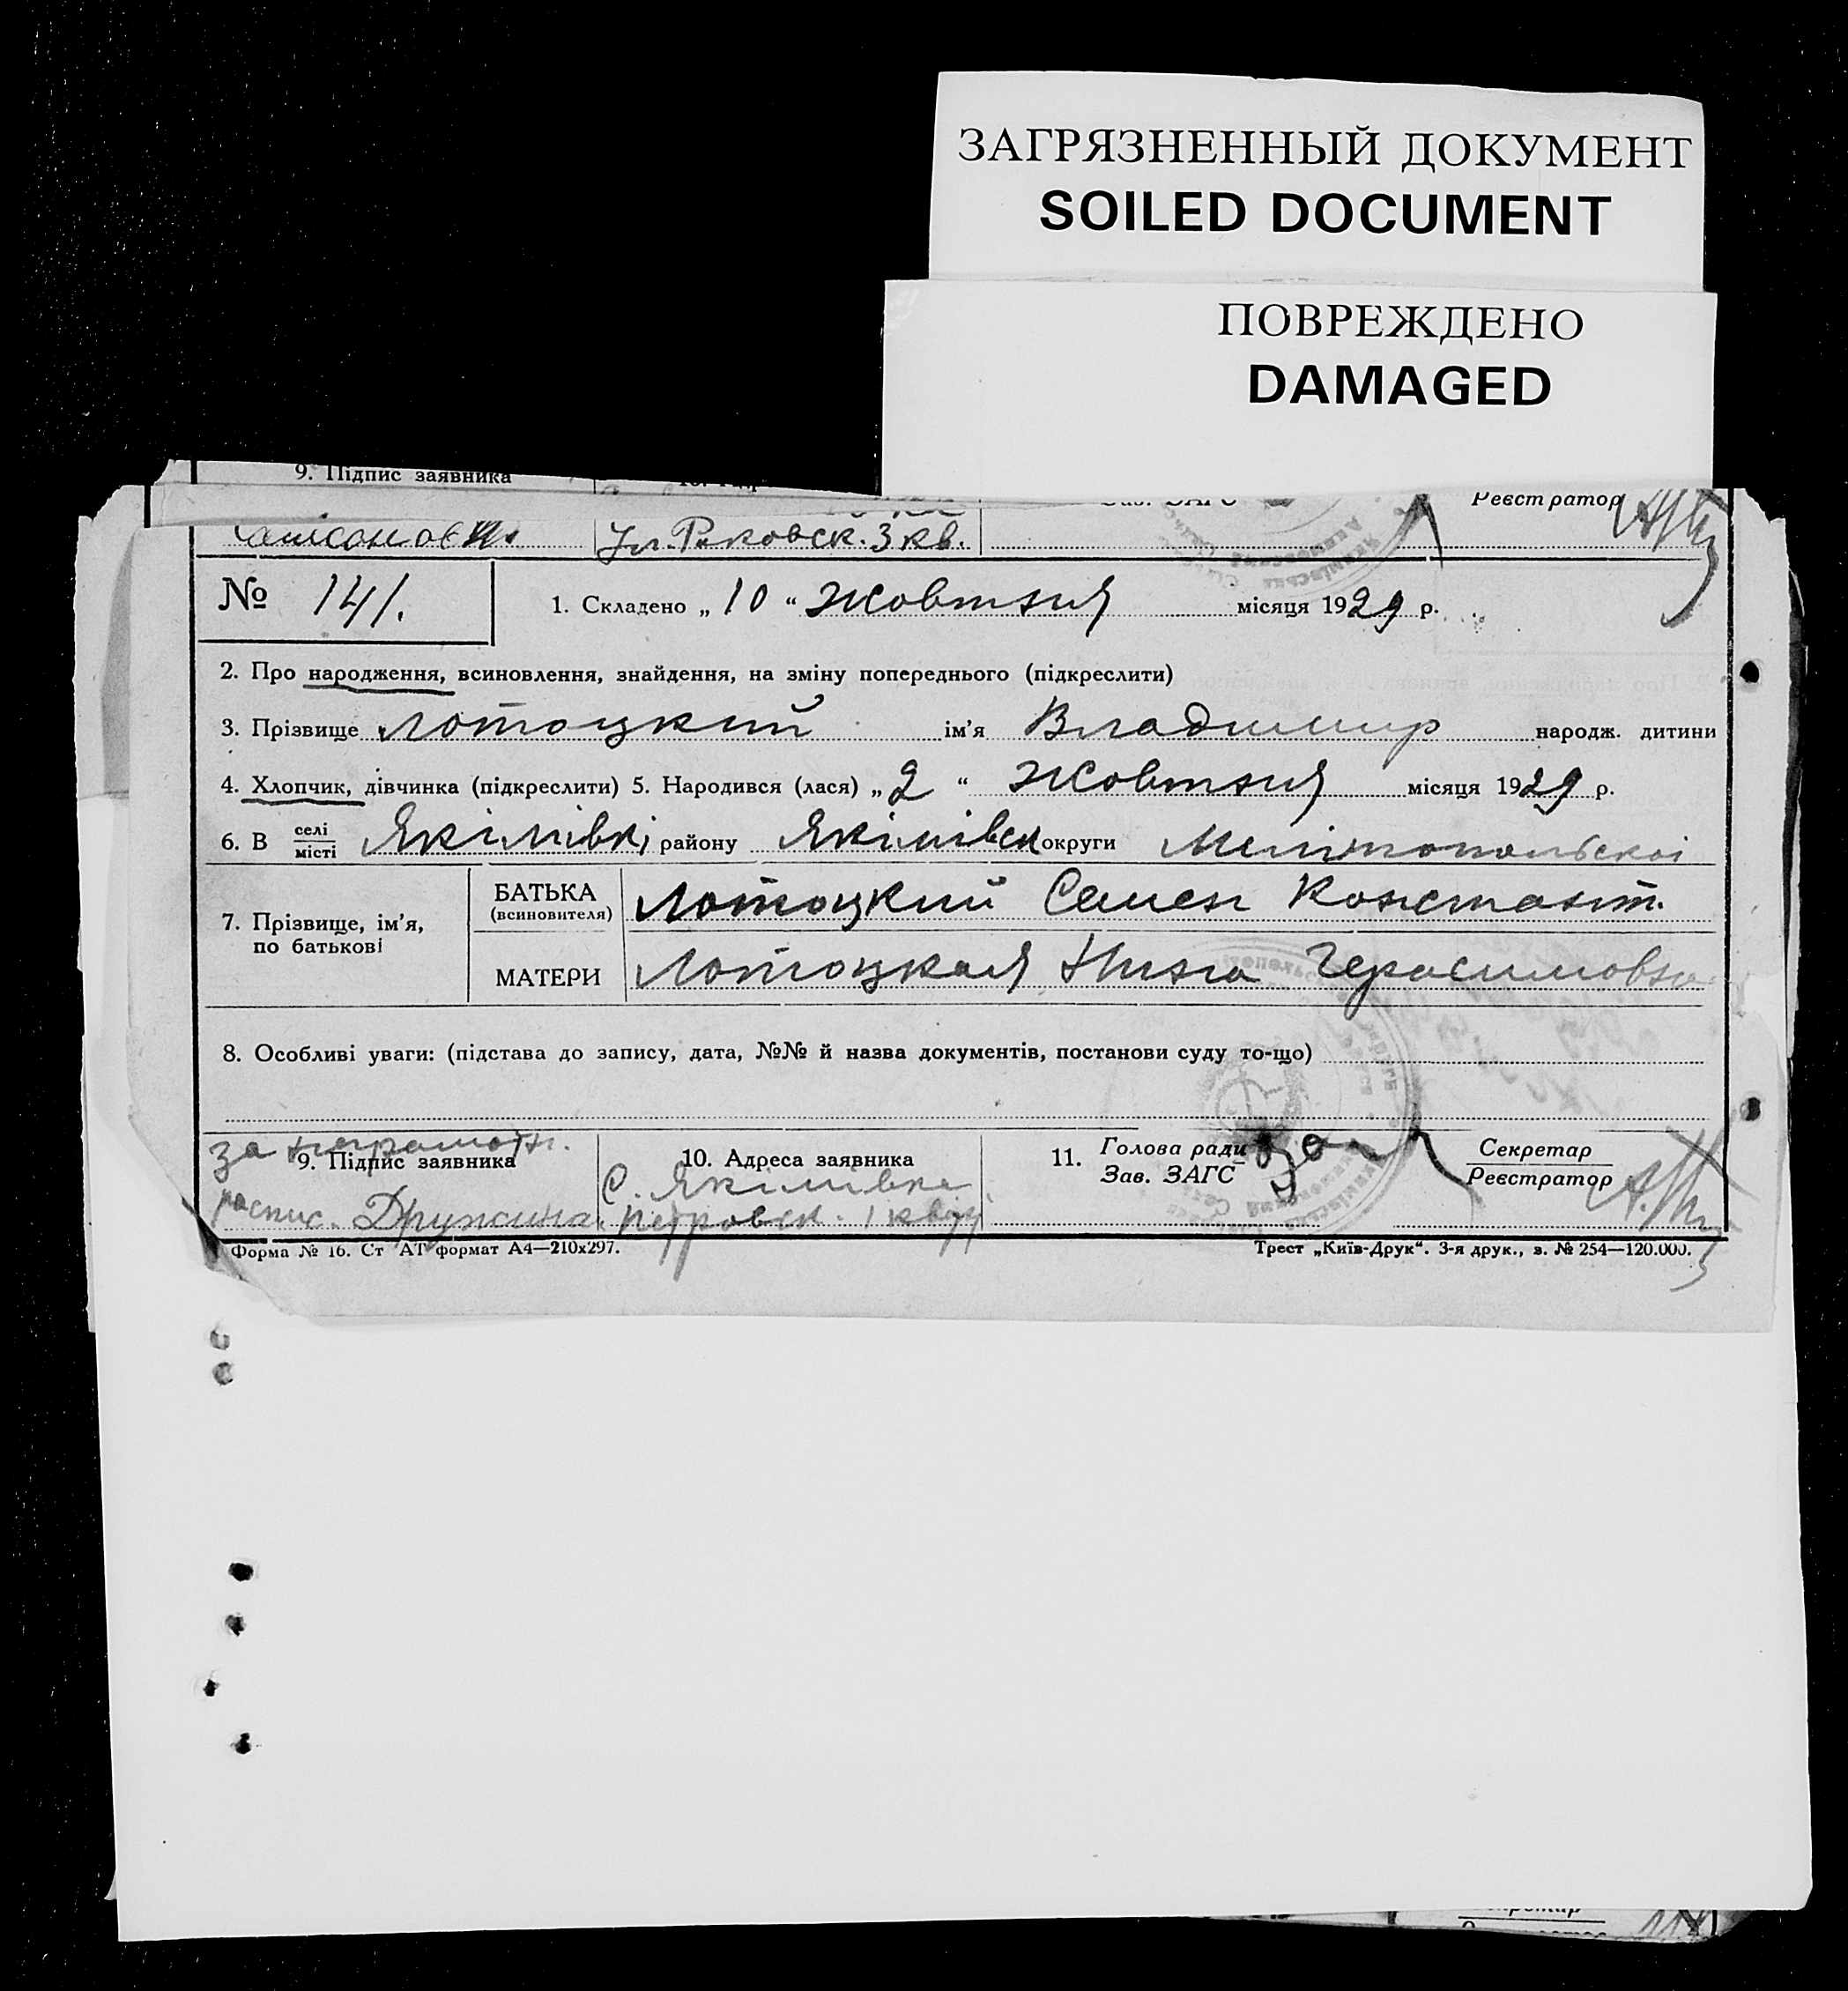 ЗАГРЯЗНЕННЫЙ ДОКУМЕНТ
SOILED DOCUMENT
ПОВРЕЖДЕНО
DAMAGED
9. Підпис заявника
Реєстратор
Ул. Раковск. 3 кв.
№ 141. 1. Складено „ 10 “ жовтня місяця 1929 р.
2. Про народження, всиновлення, знайдення, на зміну попереднього (підкреслити)
3. Прізвище Лотоцкий ім'я Владимир народж. дитини
4. Хлопчик, дівчинка (підкреслити) 5. Народився (лася) „ 2 “ жовтня місяця 1929 р.
6. В селі
місті Якімівкі району Якімівськ округи Мелітопольскоі
7. Прізвище, ім'я,
по батькові
БАТЬКА
(всиновителя) Лотоцкий Семен Констант.
МАТЕРИ Лотоцкая Нина Герасимовна
8. Особливі уваги: (підстава до запису, дата, №№ й назва документів, постанови суду то-що)
за неграмотн.
9. Підпис заявника
распис. Дружина.
10. Адреса заявника
С. Якимивка
Петровск. 1 кварт
11. Голова ради
Зав. ЗАГС
Секретар
Реєстратор
Форма № 16. Ст АТ формат А4—210х297.
Трест „Київ-Друк“. 3-я друк., з. № 254—120.000.